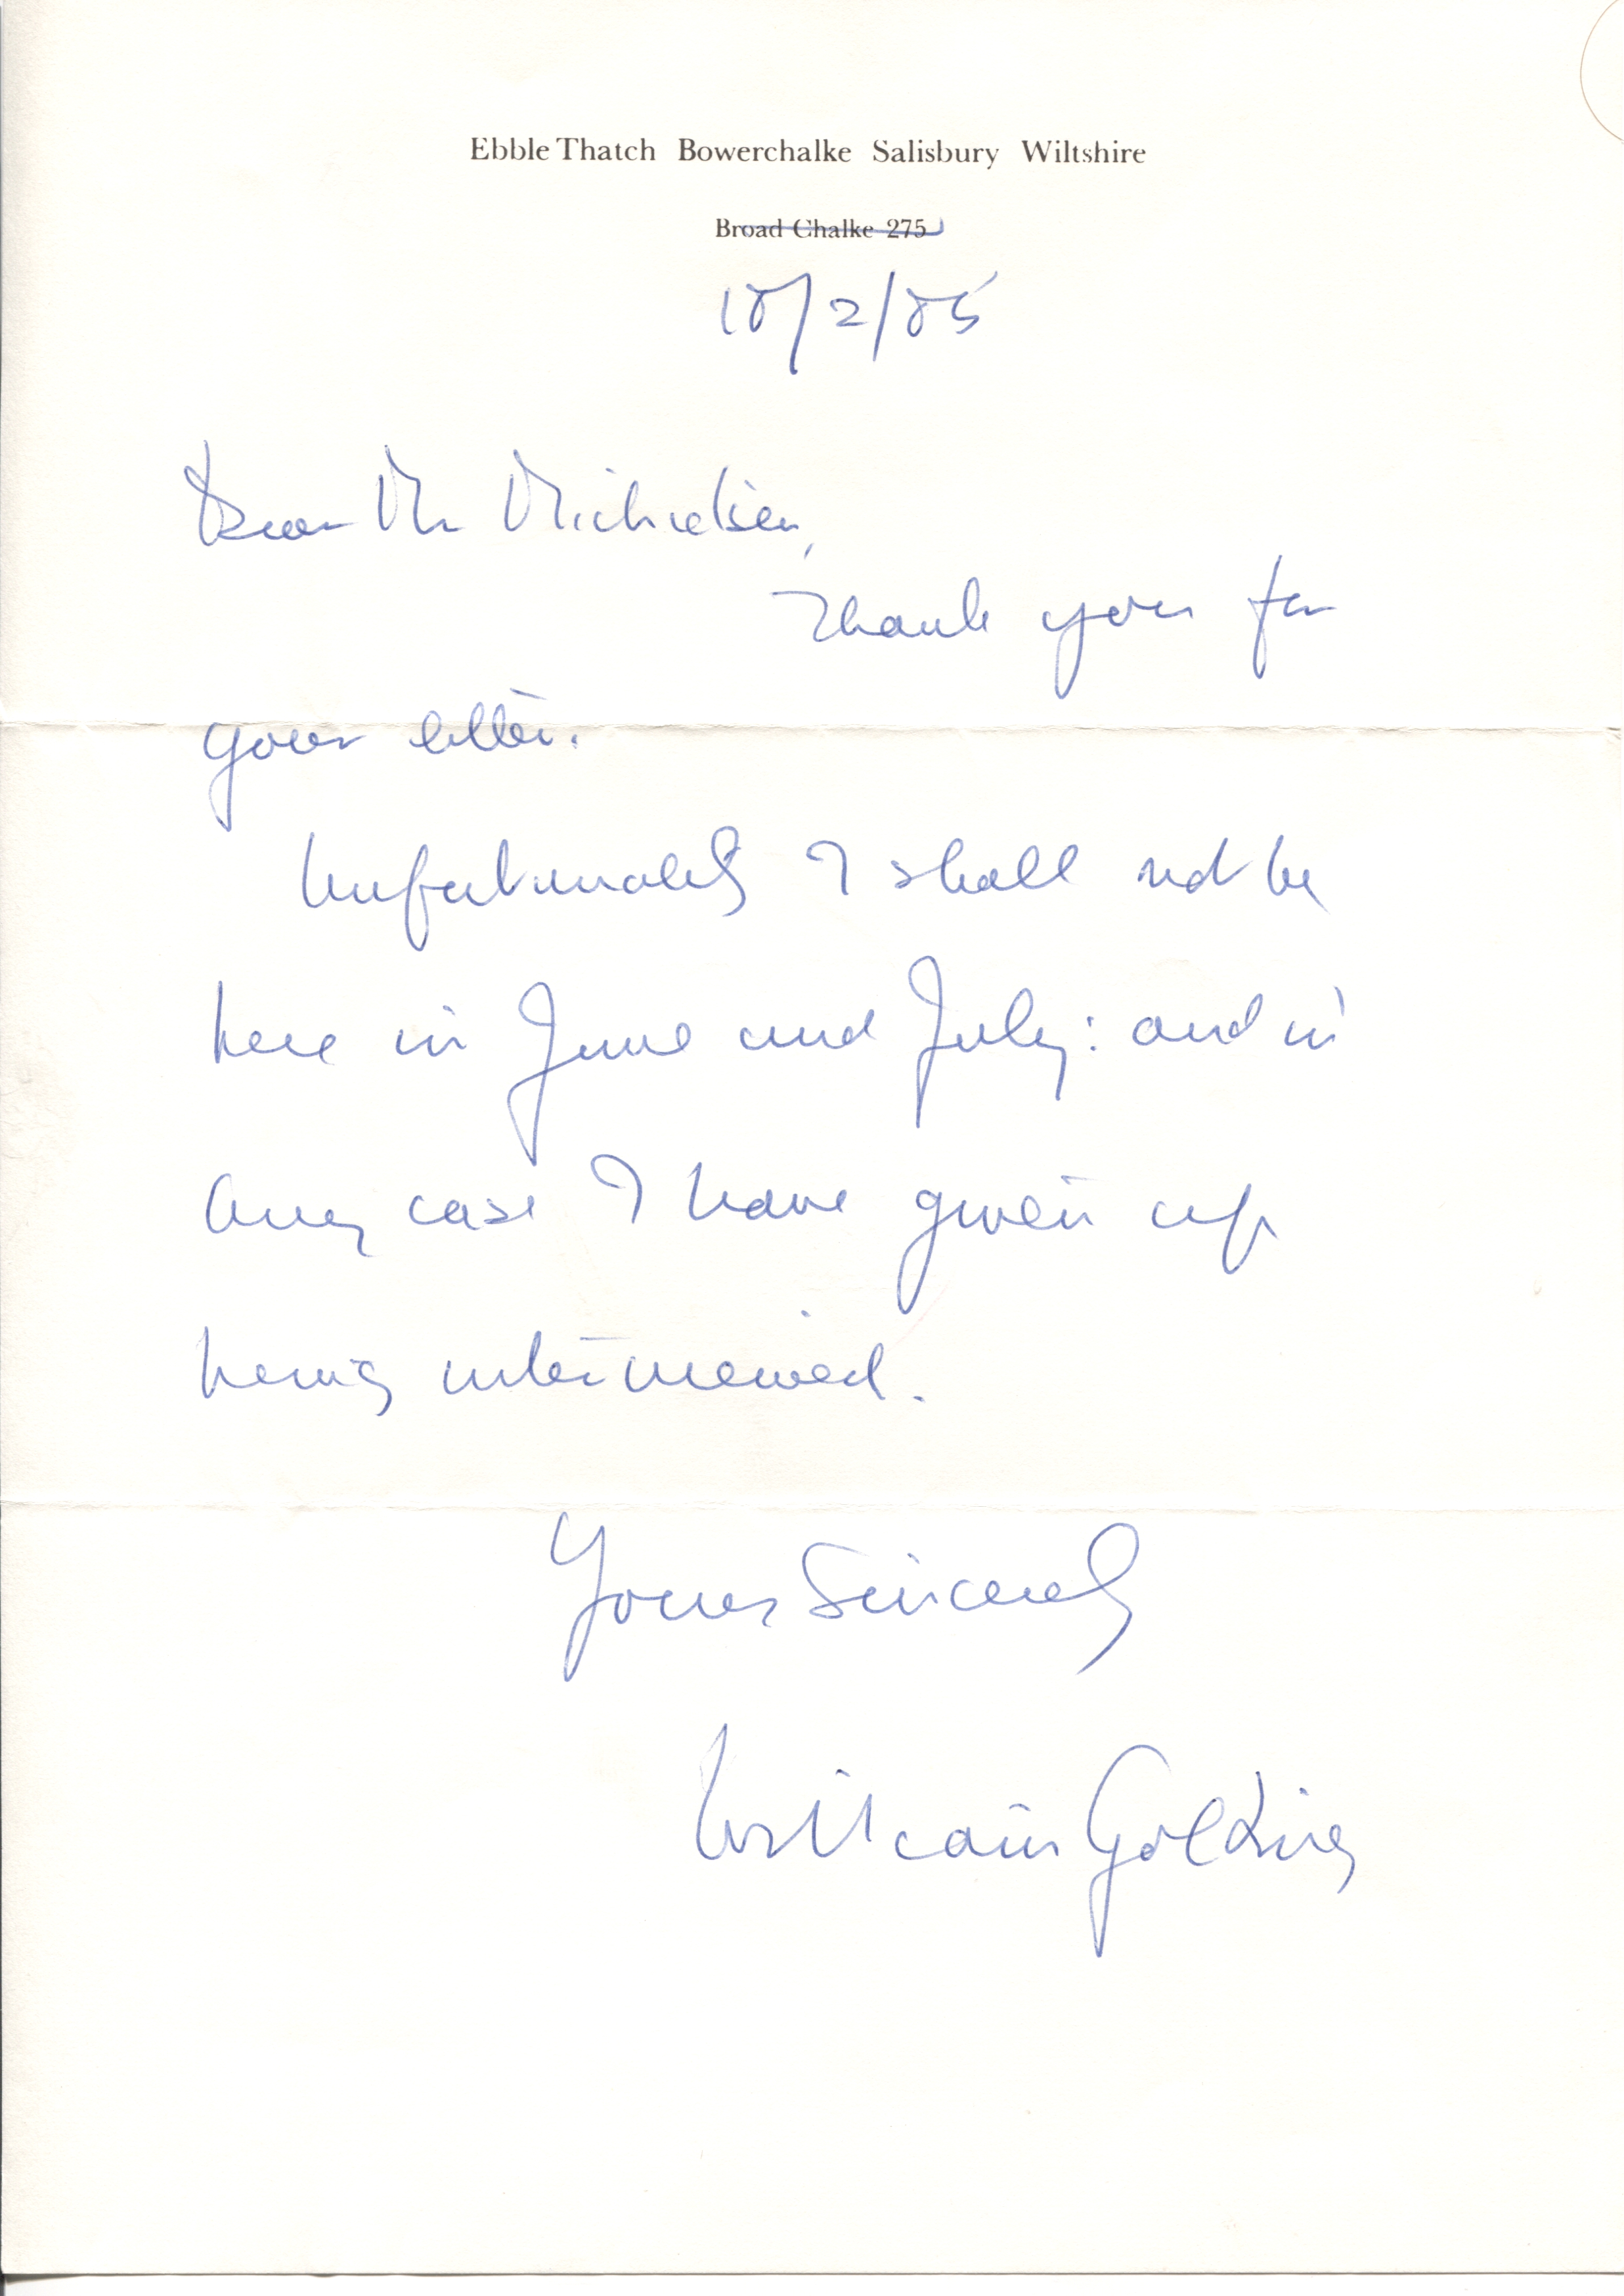 Ebble Thatch Bowerchalke Salisbury Wiltshire
Broad Chalke 275
18/2/85
Dear Mr Michielsen,
Thank you for
your letter.
Unfortunately I shall not be
here in June and July: and in
any case I have given up
being interviewed.
Yours Sincerely
William Golding